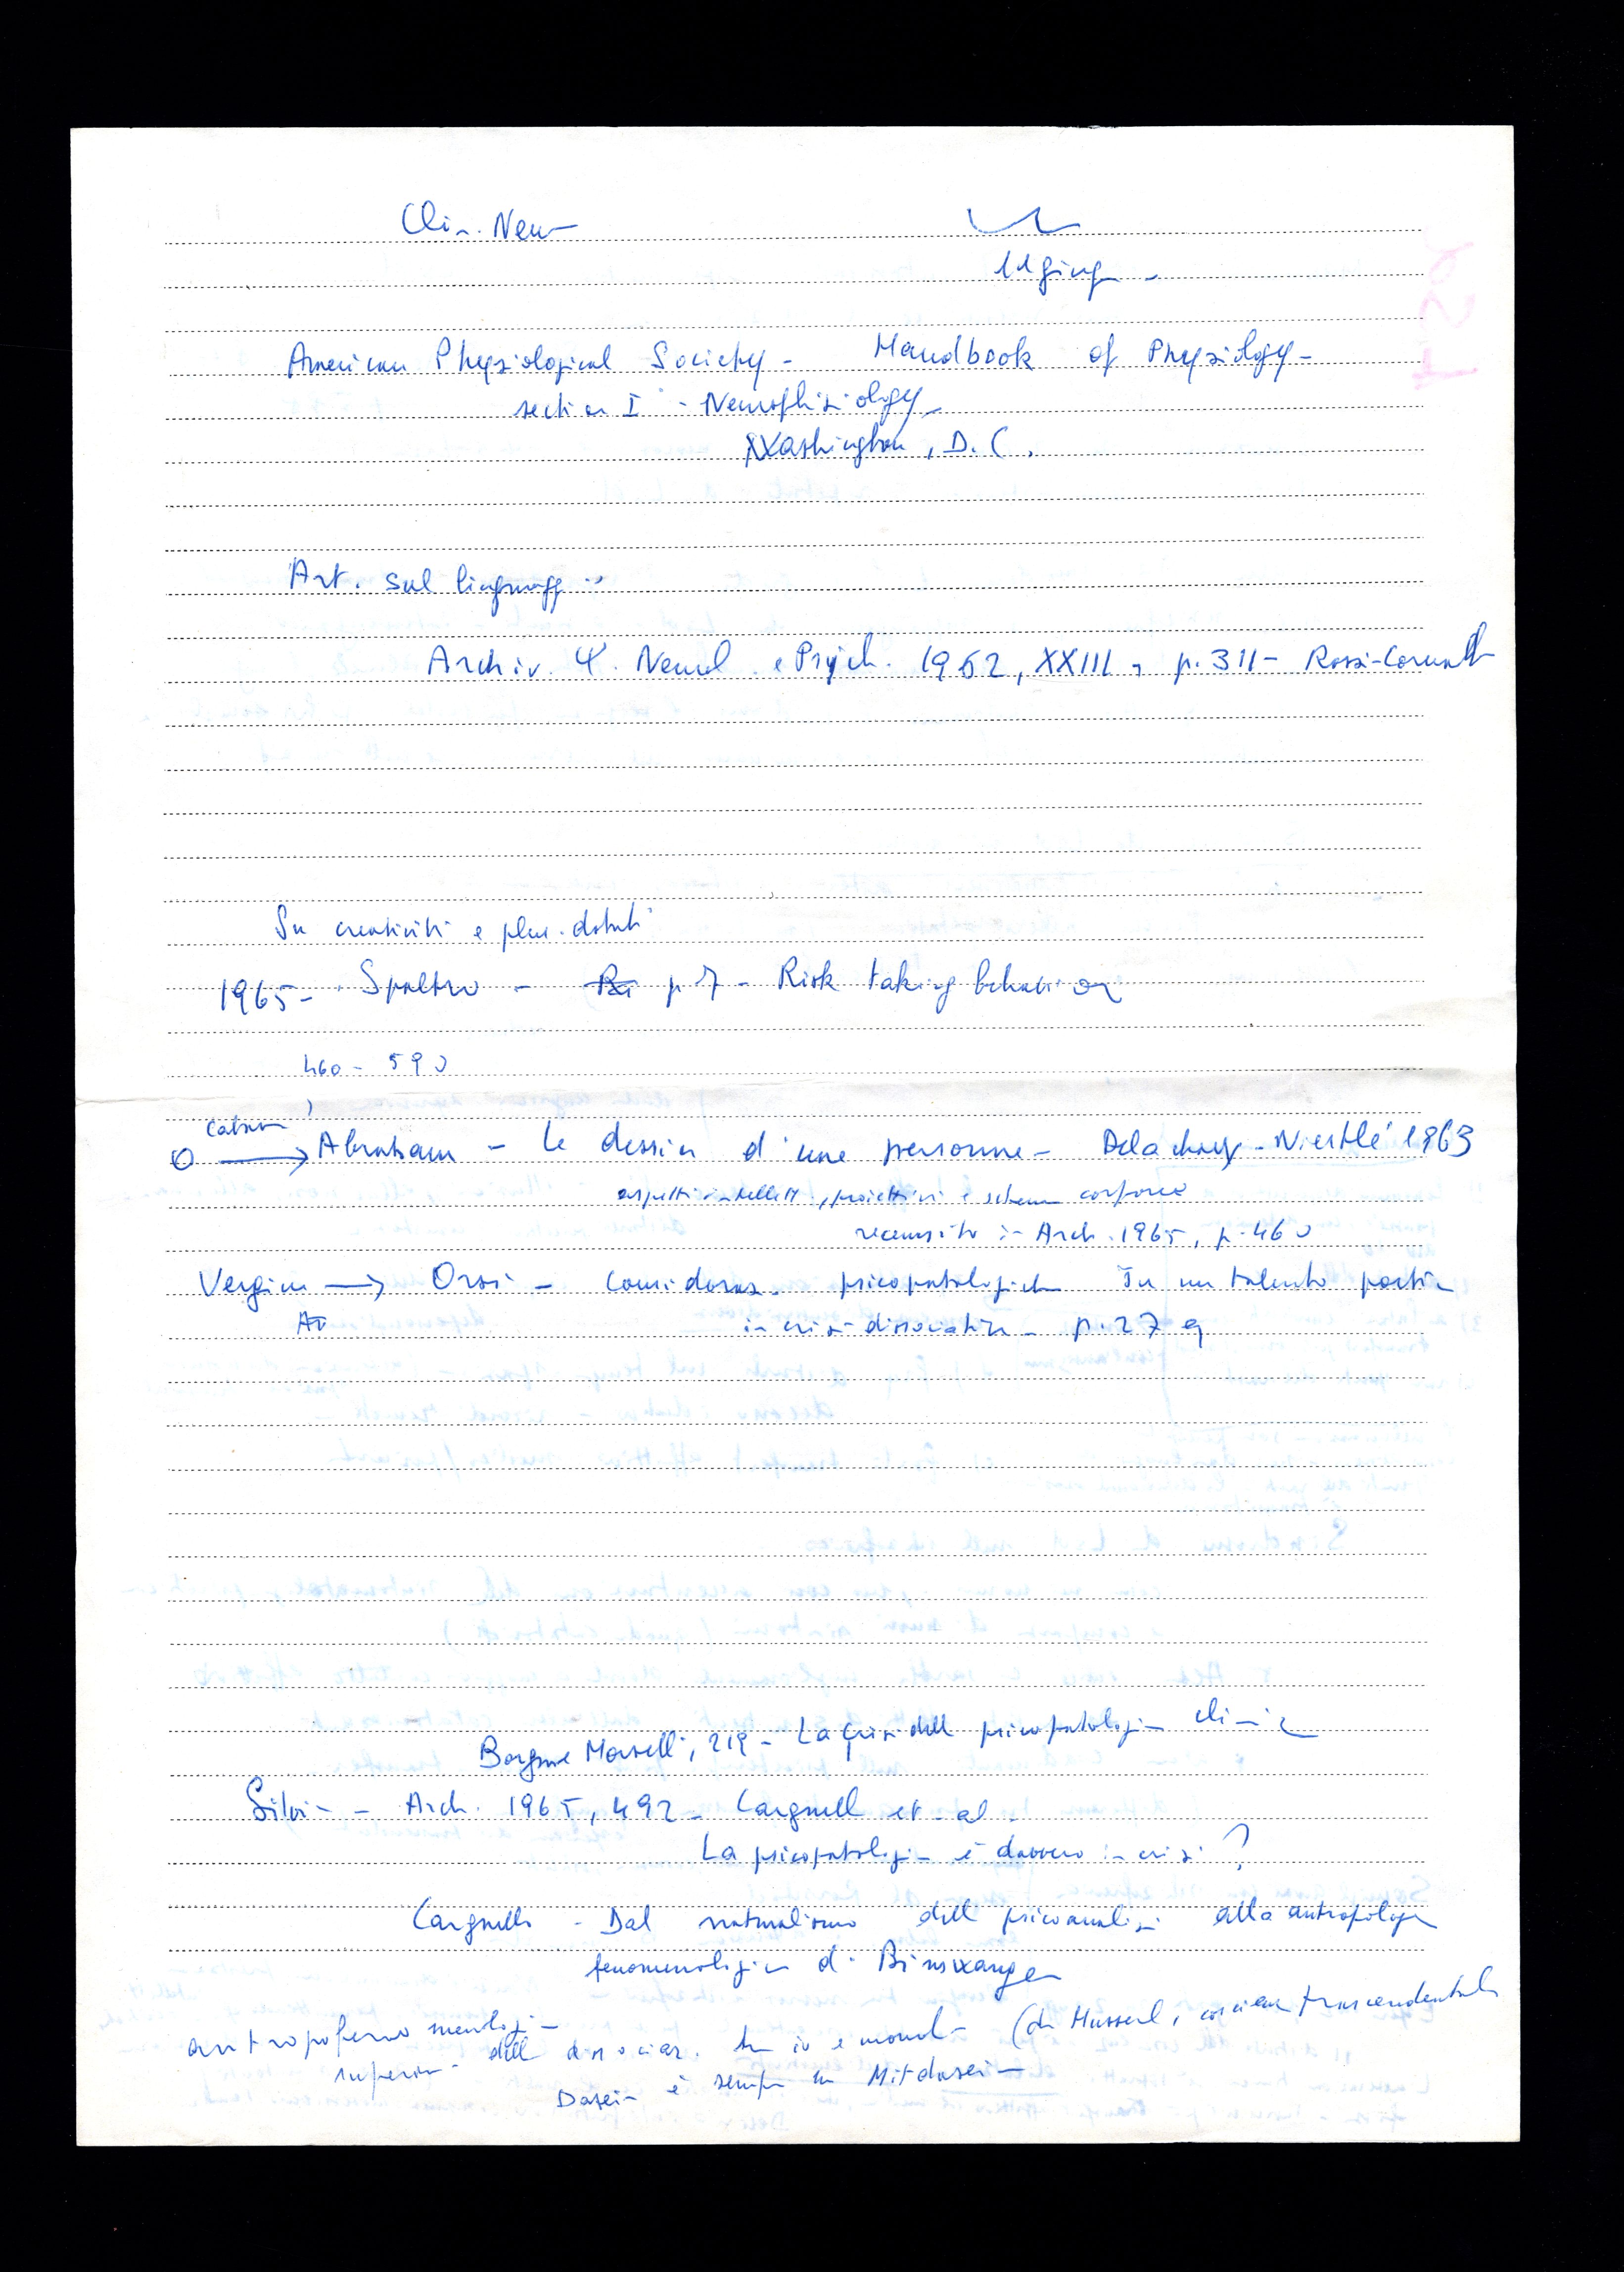 Clin. Neur
11 giug -
American Physiological Society - Handbook of Physiology -
section I - Neurophisiology
Washington, D.C.
Art. sul linguaggio
Archiv. Ψ. Neurol. e Psych. 1962, XXIII, p. 311 - Rossi-
Su creatività e plus-dotati
1965 - Spaltro - p 7 - Risk taking behavior
460 - 590
Abraham - Le dessin d'une personne - Delachaux - Niestlé 1963
aspetti intellett, proiettivi e schema corporeo
recensito in Arch. 1965, p. 460
Orsi - Consideraz. psicopatologiche su un talento poetic
in crisi dissociativa - p. 279
Morselli, 219 - La crisi della psicopatologia clinica
Silvia - Arch. 1965, 492 - Cargnello et al.
La psicopatologia è davvero in crisi?
Cargnello - Dal naturalismo della psicoanalisi alla antropologia
fenomenologica di Binswanger
antropofenomenologia
superam. della dissociaz. tra io e mondo (da Husserl, coscienza trascendentale
Dasein è sempre un Mitdasein